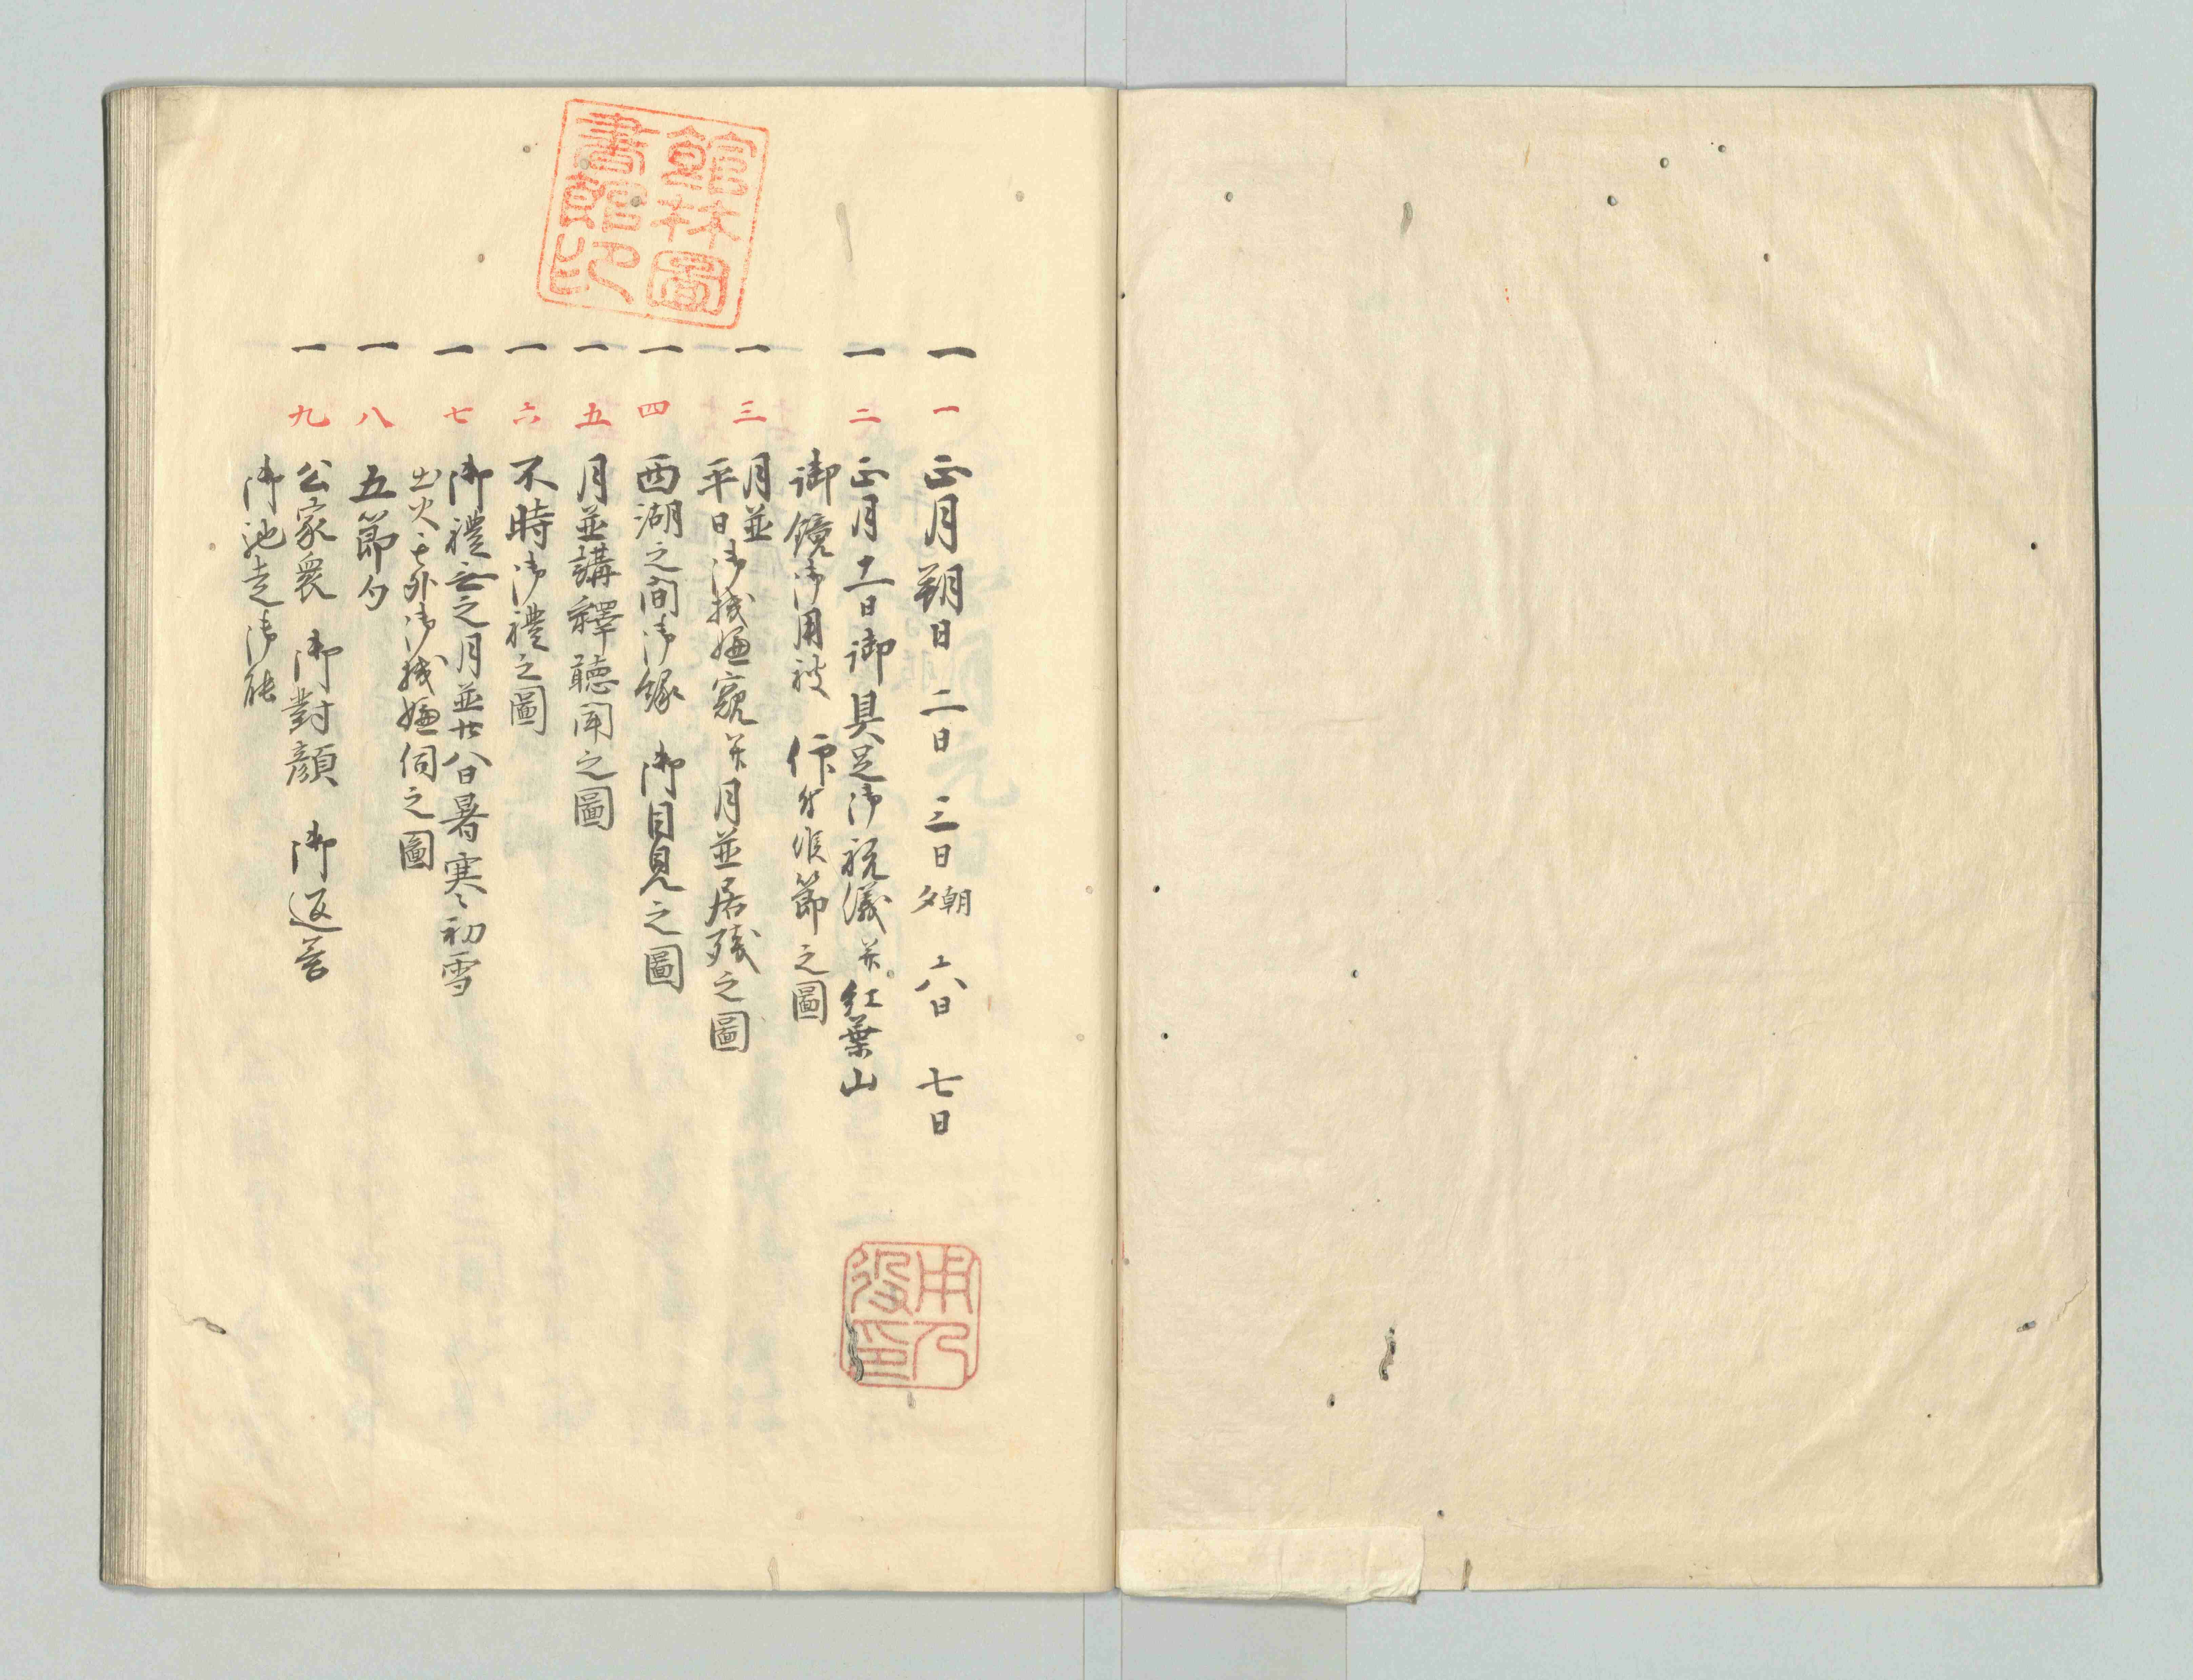 館林圖
書館印
一 一 正月朔日 二日 三日 朝夕 六日 七日
一 二 正月十一日御具足御祝儀并紅葉山
御鏡御用被 仰付候節之圖
一 三 月並
平日御機嫌窺并月並居残之圖
一 四 西湖之間御縁 御目見之圖
一 五 月並講釋聴聞之圖
一 六 不時御禮之圖
一 七 御禮無之月並廿八日暑寒初雪
出火其外御機嫌伺之圖
一 八 五節句
一 九 公家衆 御對顔 御返答
御馳走御能